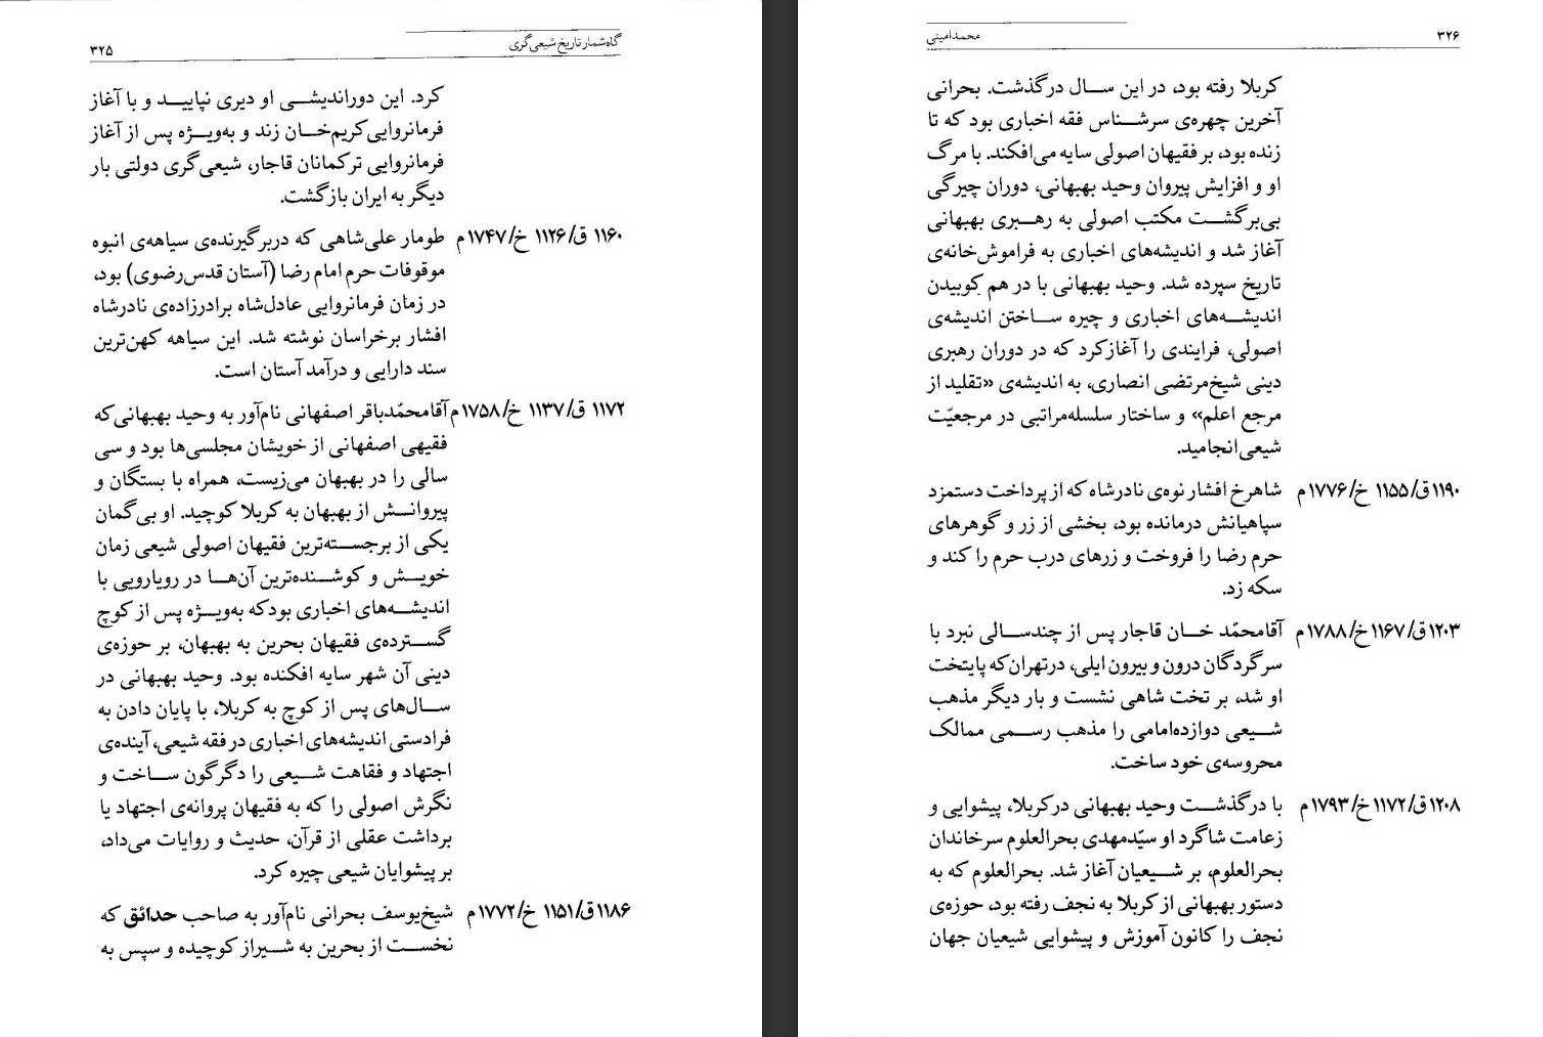 گاه‌شمار تاریخ شیعی‌گری ۳۲۵
کرد. این دوراندیشی او دیری نپایید و با آغاز
فرمانروایی کریم‌خان زند و به‌ویژه پس از آغاز
فرمانروایی ترکمانان قاجار، شیعی‌گری دولتی بار
دیگر به ایران بازگشت.
۱۱۶۰ ق/۱۱۲۶ خ/۱۷۴۷ م طومار علی‌شاهی که دربرگیرنده‌ی سیاهه‌ی انبوه
موقوفات حرم امام رضا (آستان قدس‌رضوی) بود،
در زمان فرمانروایی عادل‌شاه برادرزاده‌ی نادرشاه
افشار برخراسان نوشته شد. این سیاهه کهن‌ترین
سند دارایی و درآمد آستان است.
۱۱۷۲ ق/۱۱۳۷ خ/۱۷۵۸ م آقامحمّدباقر اصفهانی نام‌آور به وحید بهبهانی‌که
فقیهی اصفهانی از خویشان مجلسی‌ها بود و سی
سالی را در بهبهان می‌زیست، همراه با بستگان و
پیروانش از بهبهان به کربلا کوچید. او بی‌گمان
یکی از برجسته‌ترین فقیهان اصولی شیعی زمان
خویش و کوشنده‌ترین آن‌ها در رویارویی با
اندیشه‌های اخباری بودکه به‌ویژه پس از کوچ
گسترده‌ی فقیهان بحرین به بهبهان، بر حوزه‌ی
دینی آن شهر سایه افکنده بود. وحید بهبهانی در
سال‌های پس از کوچ به کربلا، با پایان دادن به
فرادستی اندیشه‌های اخباری در فقه شیعی، آینده‌ی
اجتهاد و فقاهت شیعی را دگرگون ساخت و
نگرش اصولی را که به فقیهان پروانه‌ی اجتهاد یا
برداشت عقلی از قرآن، حدیث و روایات می‌داد،
بر پیشوایان شیعی چیره کرد.
۱۱۸۶ ق/۱۱۵۱ خ/۱۷۷۲ م شیخ‌یوسف بحرانی نام‌آور به صاحب حدائق که
نخست از بحرین به شیراز کوچیده و سپس به
۳۲۶ محمد امینی
کربلا رفته بود، در این سال درگذشت. بحرانی
آخرین چهره‌ی سرشناس فقه اخباری بود که تا
زنده بود، بر فقیهان اصولی سایه می‌افکند. با مرگ
او و افزایش پیروان وحید بهبهانی، دوران چیرگی
بی‌برگشت مکتب اصولی به رهبری بهبهانی
آغاز شد و اندیشه‌های اخباری به فراموش‌خانه‌ی
تاریخ سپرده شد. وحید بهبهانی با در هم کوبیدن
اندیشه‌های اخباری و چیره ساختن اندیشه‌ی
اصولی، فرایندی را آغازکرد که در دوران رهبری
دینی شیخ‌مرتضی انصاری، به اندیشه‌ی «تقلید از
مرجع اعلم» و ساختار سلسله‌مراتبی در مرجعیّت
شیعی انجامید.
۱۱۹۰ ق/۱۱۵۵ خ/۱۷۷۶ م شاهرخ افشار نوه‌ی نادرشاه که از پرداخت دستمزد
سپاهیانش درمانده بود، بخشی از زر و گوهرهای
حرم رضا را فروخت و زرهای درب حرم را کند و
سکه زد.
۱۲۰۳ ق/۱۱۶۷ خ/۱۷۸۸ م آقامحمّد خان قاجار پس از چندسالی نبرد با
سرگردگان درون و بیرون ایلی، درتهران‌که پایتخت
او شد، بر تخت شاهی نشست و بار دیگر مذهب
شیعی دوازده‌امامی را مذهب رسمی ممالک
محروسه‌ی خود ساخت.
۱۲۰۸ ق/۱۱۷۲ خ/۱۷۹۳ م با درگذشت وحید بهبهانی درکربلا، پیشوایی و
زعامت شاگرد او سیّدمهدی بحرالعلوم سرخاندان
بحرالعلوم، بر شیعیان آغاز شد. بحرالعلوم که به
دستور بهبهانی از کربلا به نجف رفته بود، حوزه‌ی
نجف را کانون آموزش و پیشوایی شیعیان جهان